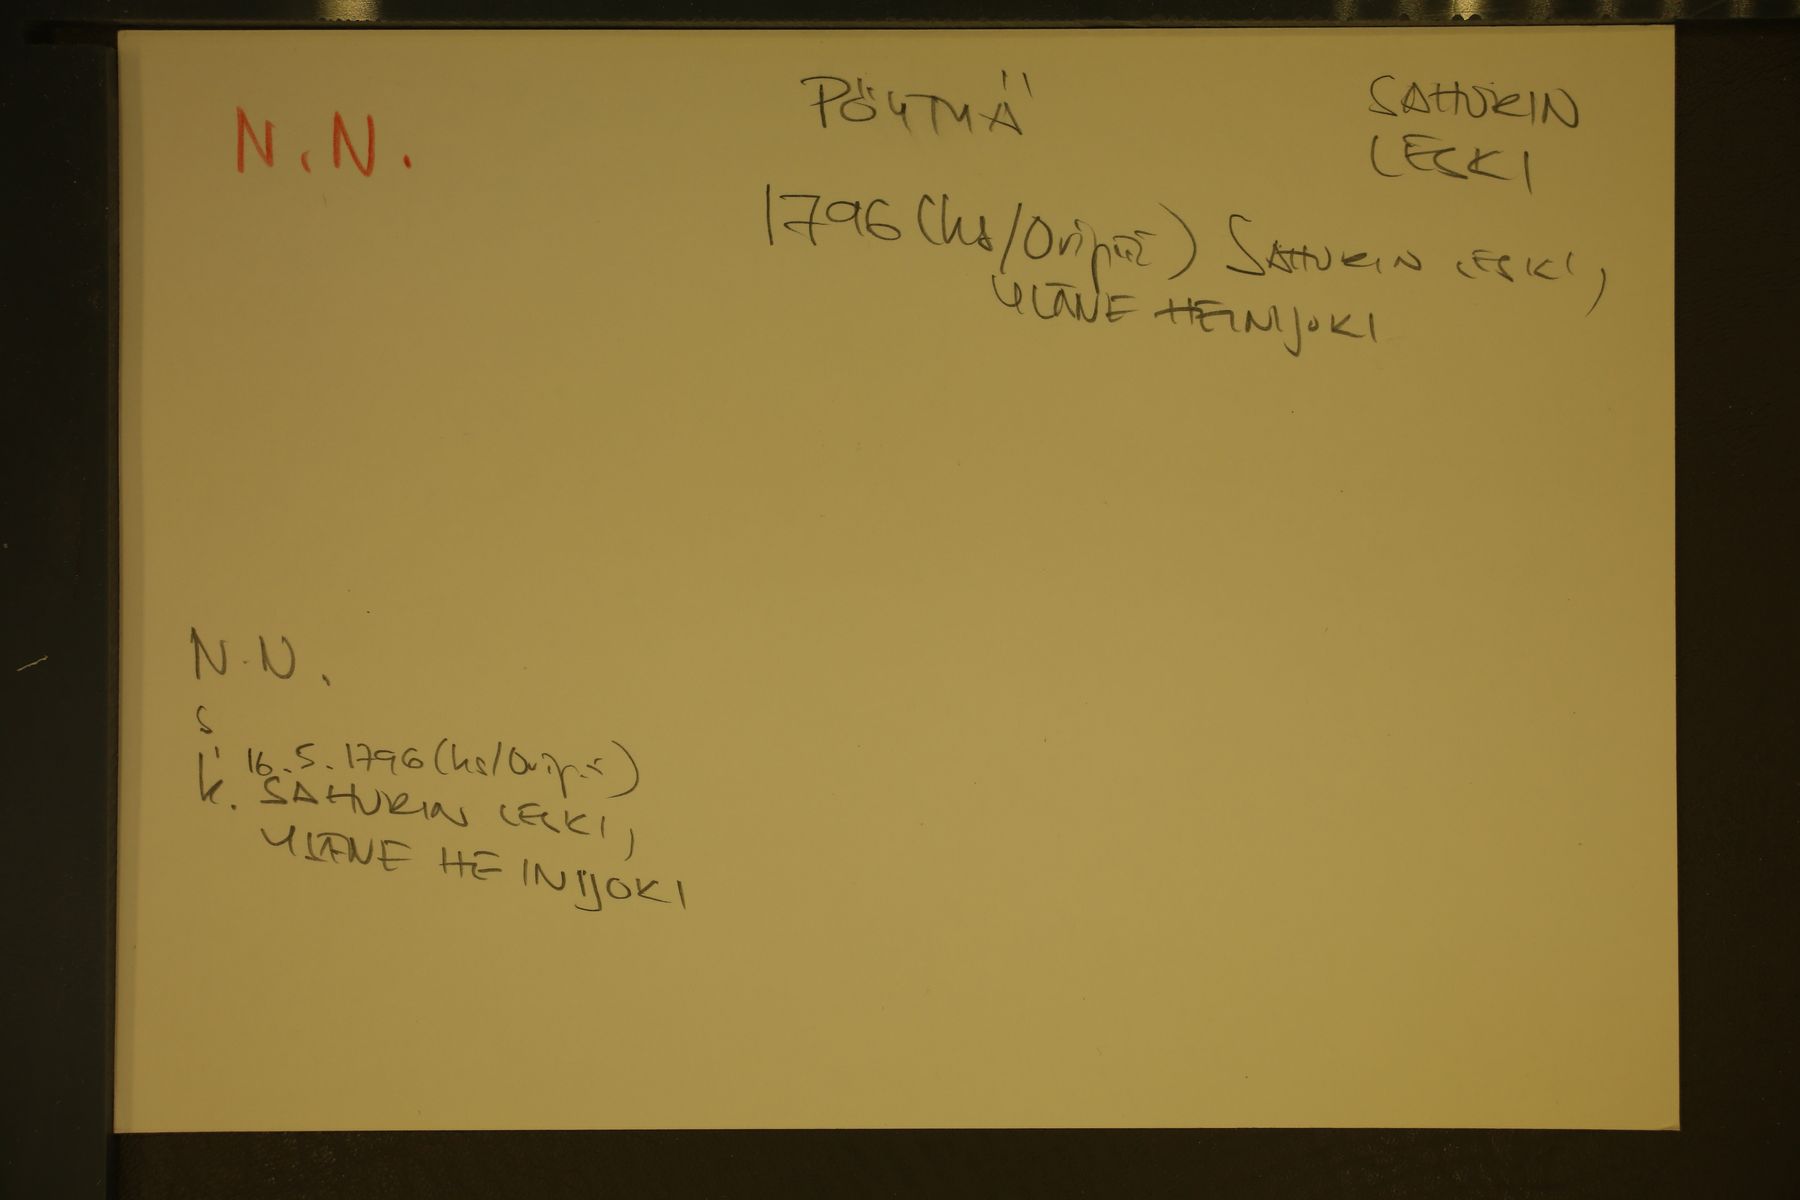 N.N.
PÖYTYÄ
SAHURIN
LESKI
1796 (ks/Oripää) SAHURIN LESKI,
YLÄNE HEINIJOKI
N.N.
s
k 16.5.1796 (ks/Oripää)
k. SAHURIN LESKI,
YLÄNE HEINIJOKI